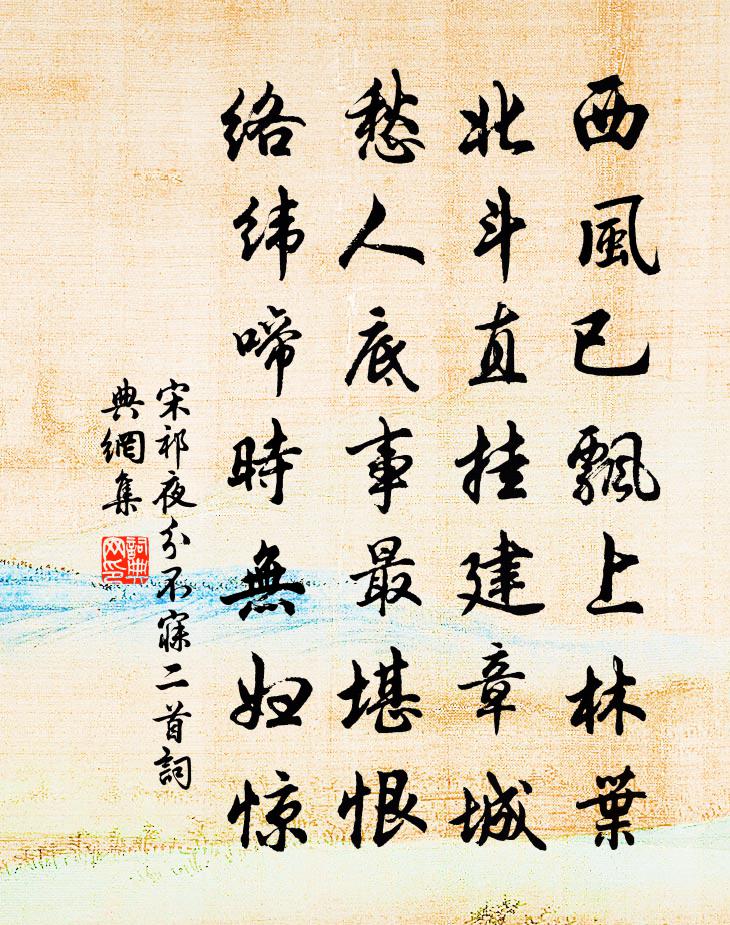 西風已飄上林葉
北斗直挂建章城
愁人底事最堪恨
絡緯啼時無妇惊
宋祁夜分不寐二首詞
典網集
詞典
网印